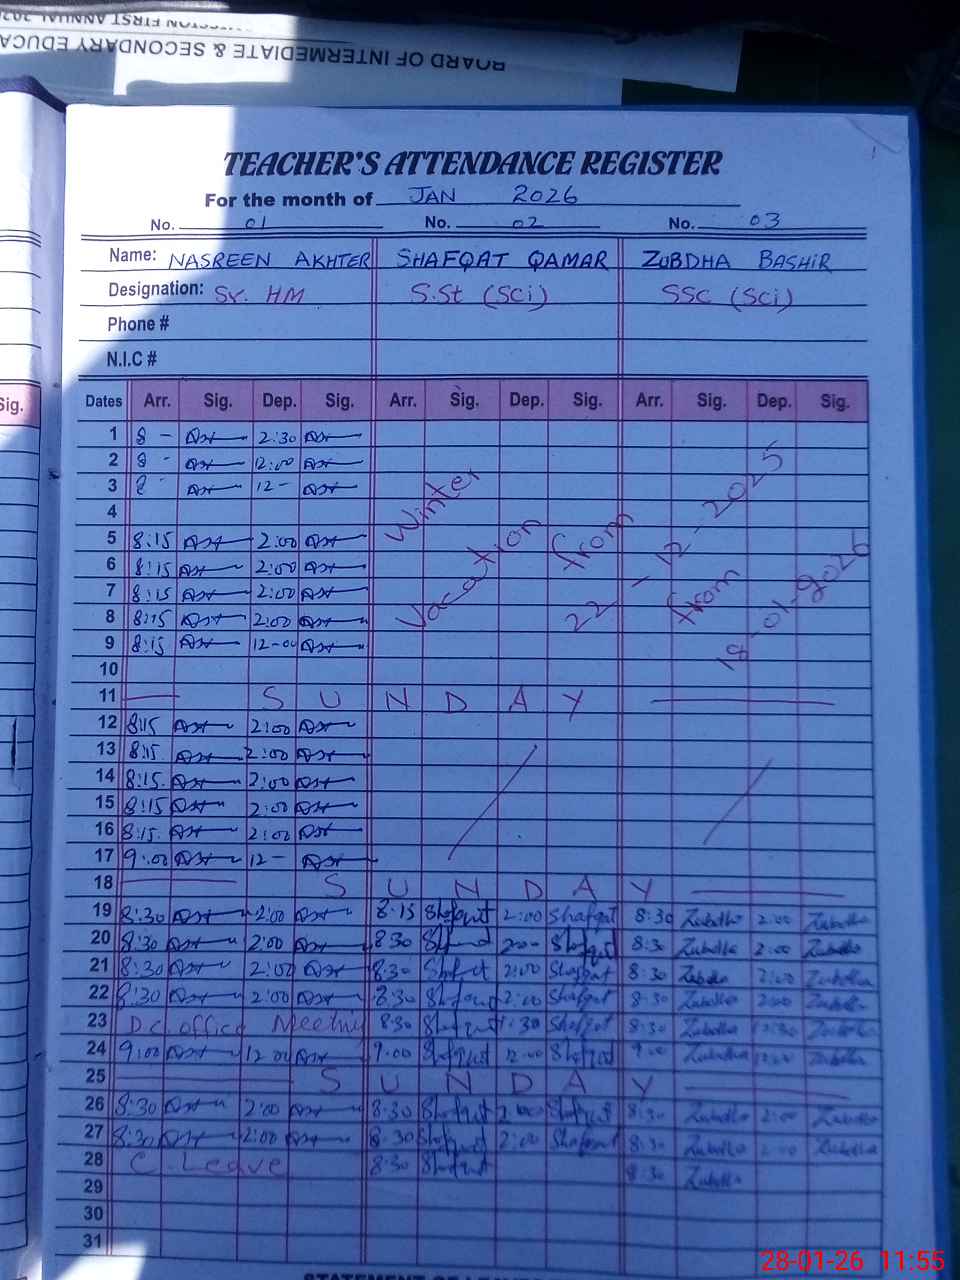 BOARD OF INTERMEDIATE & SECONDARY EDUCA
TEACHER'S ATTENDANCE REGISTER
For the month of JAN 2026
No. 01 No. 02 No. 03
Name: NASREEN AKHTER SHAFQAT QAMAR ZUBDHA BASHIR
Designation: Sr. HM S.St (Sci) SSc (Sci)
Phone #
N.I.C #
Sig. Dates Arr. Sig. Dep. Sig. Arr. Sig. Dep. Sig. Arr. Sig. Dep. Sig.
1 8 - 2:30
2 8 - 12:00
3 8 - 12 -
4
5 8:15 2:00
6 8:15 2:00
7 8:15 2:00
8 8:15 2:00
9 8:15 12-00
10
Winter Vacation from 22-12-2025 from 18-01-2026
11 SUNDAY
12 8:15 2:00
13 8:15 2:00
14 8:15 2:00
15 8:15 2:00
16 8:15 2:00
17 9:00 12 -
18 SUNDAY
19 8:30 2:00 8:15 Shafqat 2:00 Shafqat 8:30 Zubdha 2:00 Zubdha
20 8:30 2:00 8:30 Shafqat 2:00 Shafqat 8:30 Zubdha 2:00 Zubdha
21 8:30 2:00 8:30 Shafqat 2:00 Shafqat 8:30 Zubdha 2:00 Zubdha
22 8:30 2:00 8:30 Shafqat 2:00 Shafqat 8:30 Zubdha 2:00 Zubdha
23 D.C. office Meeting 8:30 Shafqat Shafqat 8:30 Zubdha Zubdha
24 9:00 12:00 9:00 Shafqat 12:00 Shafqat 9:00 Zubdha 12:00 Zubdha
25 SUNDAY
26 8:30 2:00 8:30 Shafqat 2:00 Shafqat 8:30 Zubdha 2:00 Zubdha
27 8:30 2:00 8:30 Shafqat 2:00 Shafqat 8:30 Zubdha 2:00 Zubdha
28 C. Leave 8:30 Shafqat 8:30 Zubdha
29
30
31
28-01-26 11:55